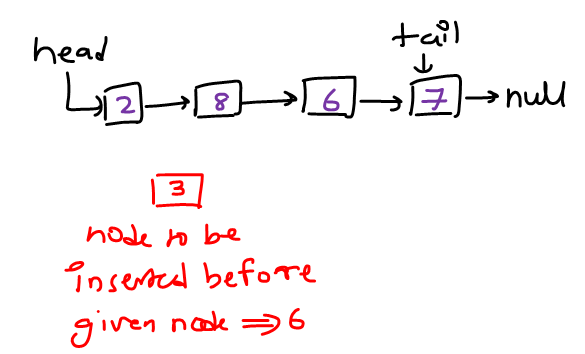 tail
head
2 8 6 7 null
3
node to be
inserted before
given node ⇒ 6